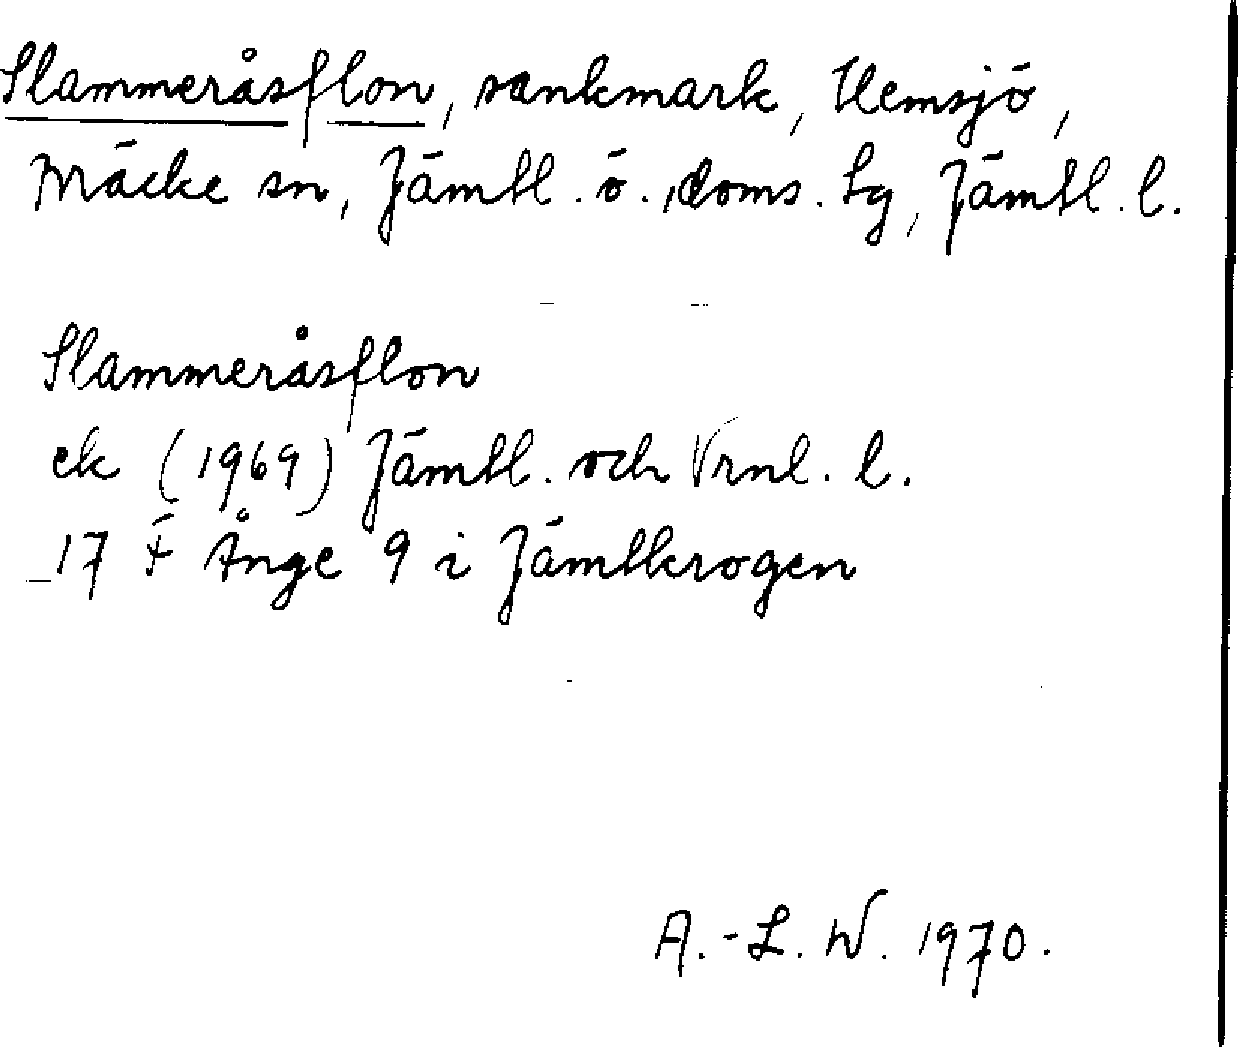 Slammeråsflon, sankmark, Hemsjö,
Bräcke sn, Jämtl. ö. doms. tg, Jämtl. l.
Slammeråsflon
ek (1969) Jämtl. och Vrnl. l.
17 F Ånge 9 i Jämtkrogen
A.-L. W. 1970.